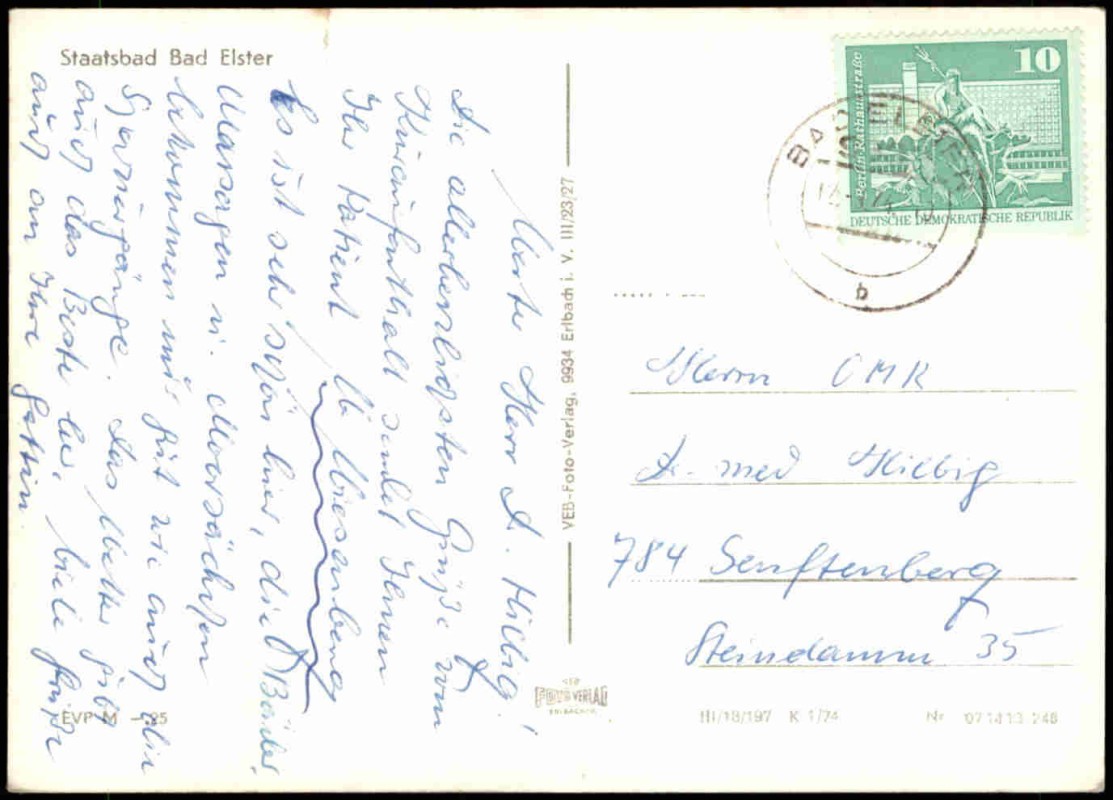 Staatsbad Bad Elster
Werte Herr Dr. Hilbig!
Die allerherzlichsten Grüße vom
Kuraufenthalt sendet Ihnen
Ihr Patient W. Wiesenberg
Es ist sehr schön hier, die Bäder,
Massagen u.
bekommen mir gut wie auch die
Spaziergänge. Das Wetter gibt
auch das Beste her. Viele Grüße
auch an Ihre Gattin.
EVP M -,25
VEB-Foto-Verlag, 9934 Erlbach i. V. III/23/27
VEB
FOTO VERLAG
ERLBACH
10
Berlin-Rathausstraße
DEUTSCHE DEMOKRATISCHE REPUBLIK
BAD ELSTER
b
Herrn OMR
Dr. med Hilbig
784 Senftenberg
Steindamm 35
III/18/197 K 1/74 Nr. 07 14 13 248